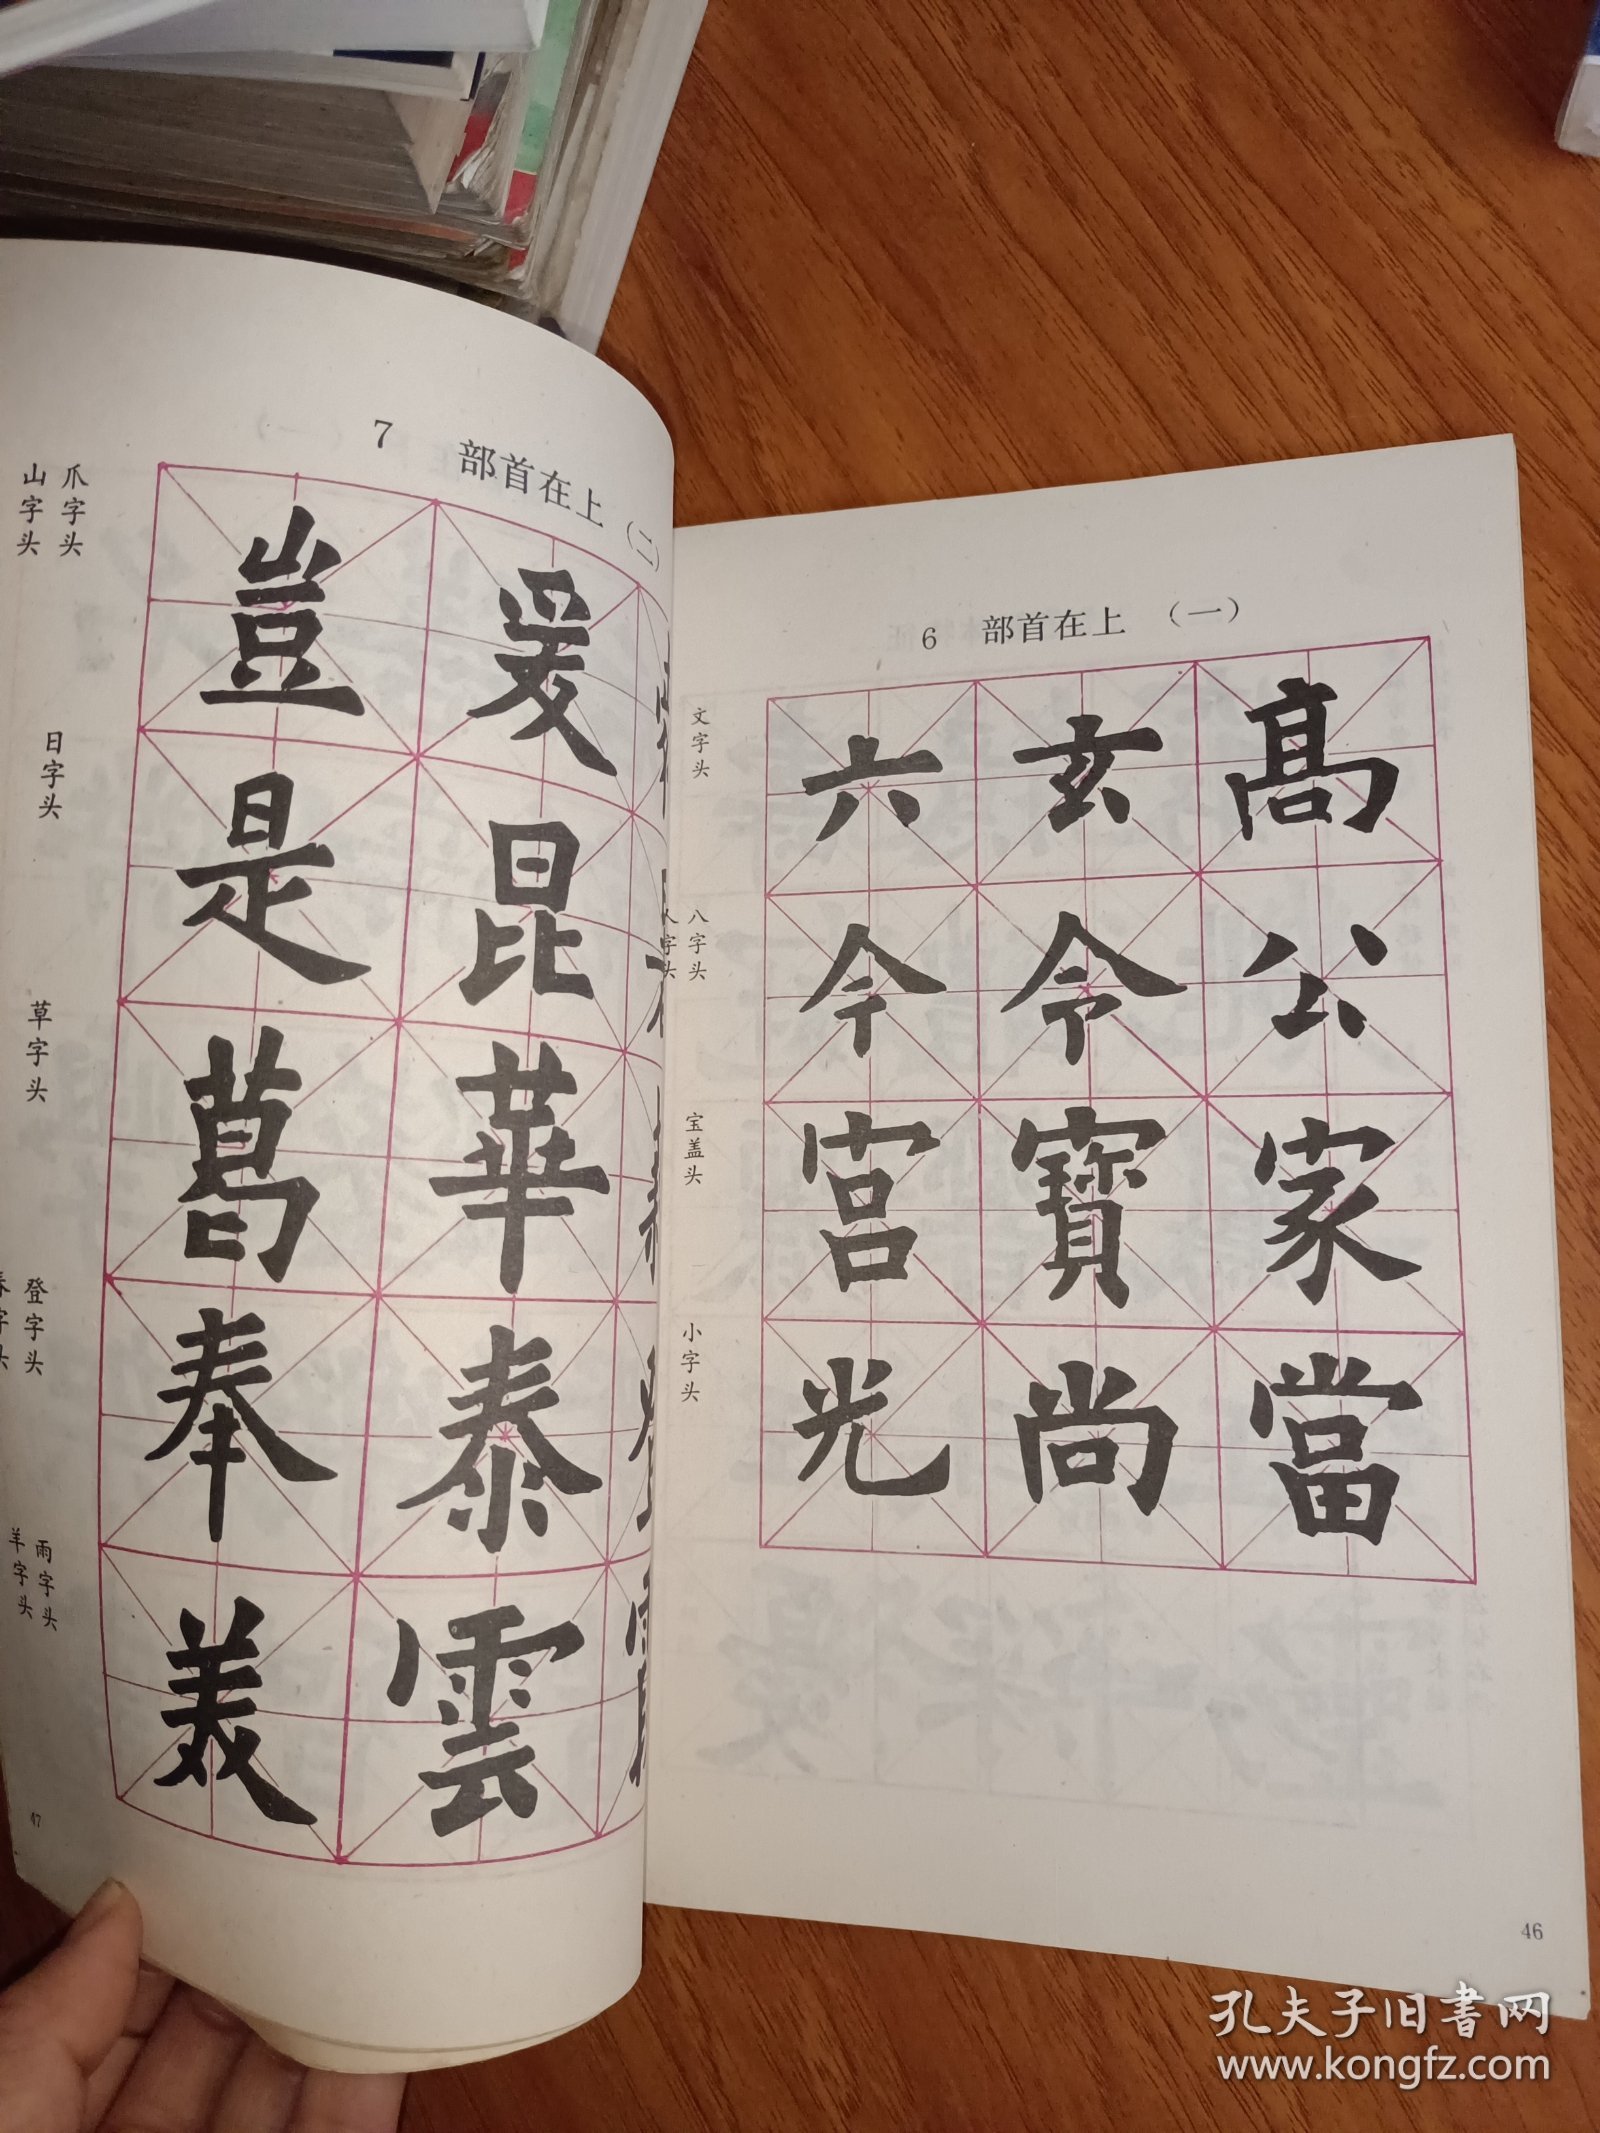 7 部首在上(二)
爪字头
山字头
豈
爰
日字头
是
昆
草字头
葛
華
登字头
春字头
奉
泰
雨字头
羊字头
美
雲
47
6 部首在上 (一)
文字头
六 玄 高
八字头
人字头
今 令 公
宝盖头
宫 寶 家
小字头
光 尚 當
46
孔夫子旧书网
www.kongfz.com